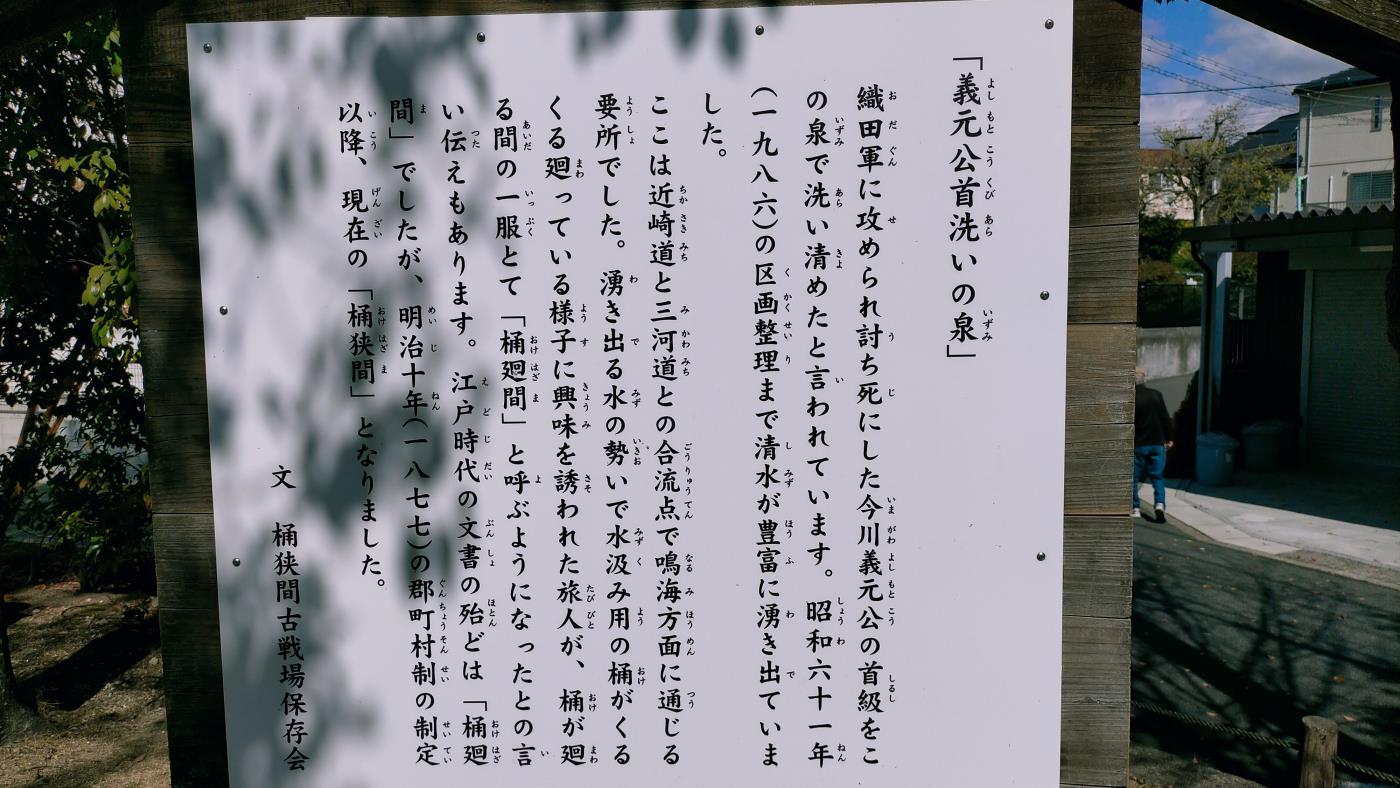 「義元公首洗いの泉」
織田軍に攻められ討ち死にした今川義元公の首級をこ
の泉で洗い清めたと言われています。昭和六十一年
（一九八六）の区画整理まで清水が豊富に湧き出ていま
した。
ここは近崎道と三河道との合流点で鳴海方面に通じる
要所でした。湧き出る水の勢いで水汲み用の桶がくる
くる廻っている様子に興味を誘われた旅人が、桶が廻
る間の一服とて「桶廻間」と呼ぶようになったとの言
い伝えもあります。江戸時代の文書の殆どは「桶廻
間」でしたが、明治十年（一八七七）の郡町村制の制定
以降、現在の「桶狭間」となりました。
文　桶狭間古戦場保存会